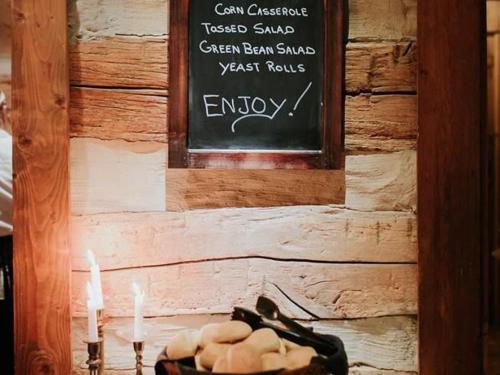 Corn Casserole
Tossed Salad
Green Bean Salad
Yeast Rolls
Enjoy!